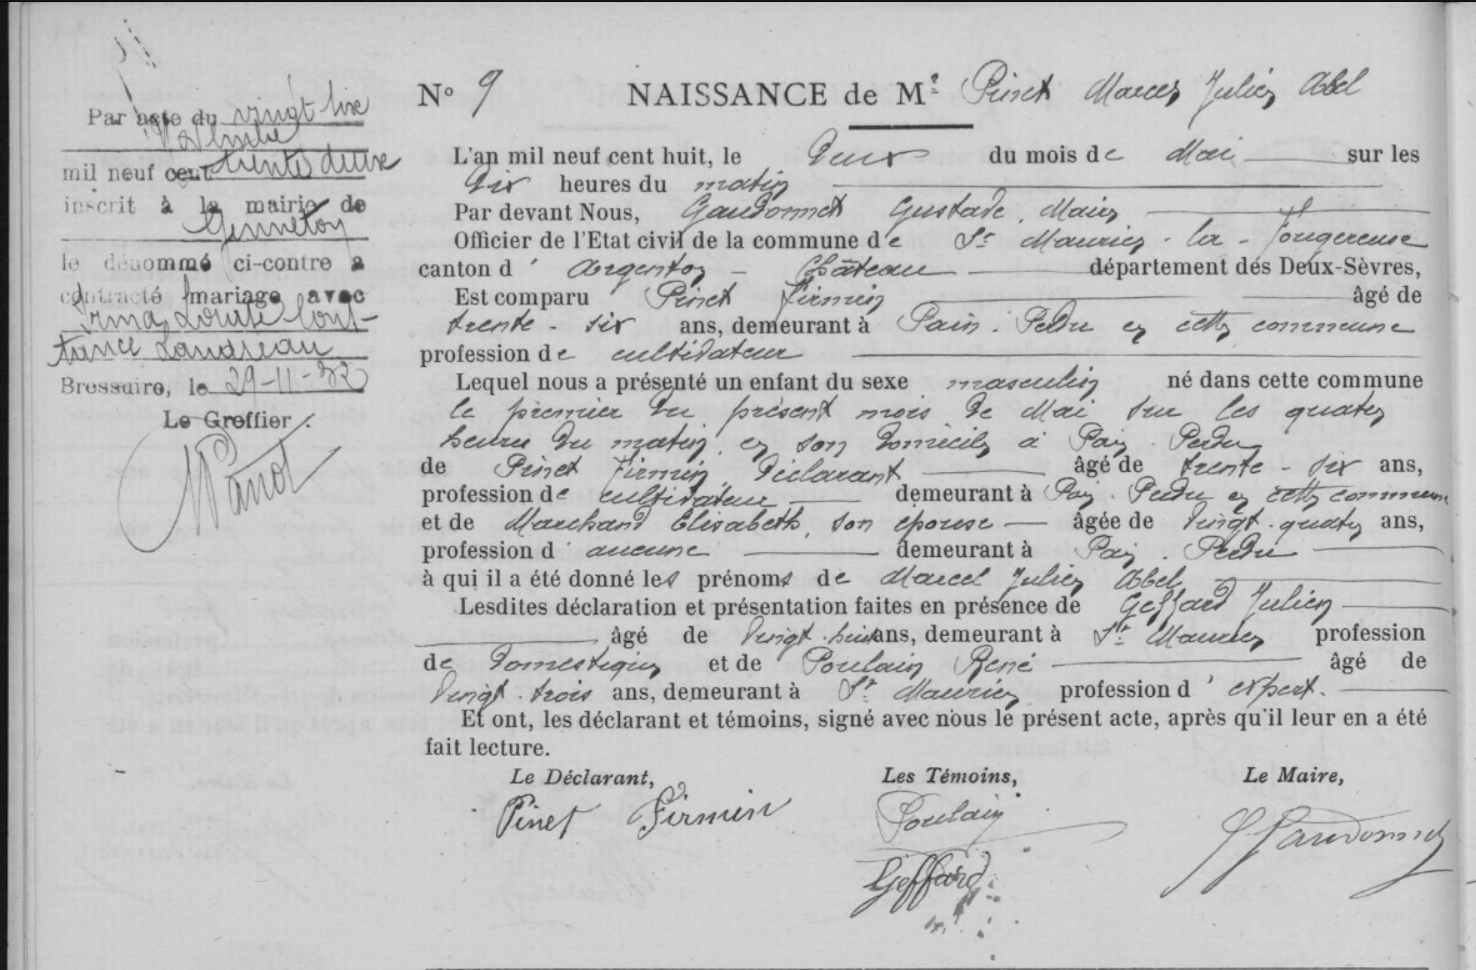 Par acte du vingt six
Novembre
mil neuf cent trente deux
inscrit à la mairie de
Genneton
le dénommé ci-contre a
contracté mariage avec
Irma, Louise Cons-
tance Landreau
Bressuire, le 29-11-32
Le Greffier :
N° 9 NAISSANCE de M. Pinet Marcel Julien Abel
L'an mil neuf cent huit, le deux du mois de Mai sur les
dix heures du matin
Par devant Nous, Gaudonnet Gustave, Maire
Officier de l'Etat civil de la commune de St Maurice-la-Fougereuse
canton d'Argenton-Château département des Deux-Sèvres,
Est comparu Pinet Firmin âgé de
trente-six ans, demeurant à Pain-Perdu en cette commune
profession de cultivateur
Lequel nous a présenté un enfant du sexe masculin né dans cette commune
le premier du présent mois de Mai sur les quatre
heures du matin, en son domicile à Pain-Perdu
de Pinet Firmin, Déclarant âgé de trente-six ans,
profession de cultivateur demeurant à Pain-Perdu en cette commune
et de Marchand Elisabeth, son épouse âgée de vingt-quatre ans,
profession d'aucune demeurant à Pain-Perdu
à qui il a été donné les prénoms de Marcel Julien Abel
Lesdites déclaration et présentation faites en présence de Geffard Julien
âgé de vingt-huit ans, demeurant à St Maurice profession
de domestique et de Poulain René âgé de
vingt-trois ans, demeurant à St Maurice profession d'expert.
Et ont, les déclarant et témoins, signé avec nous le présent acte, après qu'il leur en a été
fait lecture.
Le Déclarant, Les Témoins, Le Maire,
Pinet Firmin Poulain G Gaudonnet
Geffard